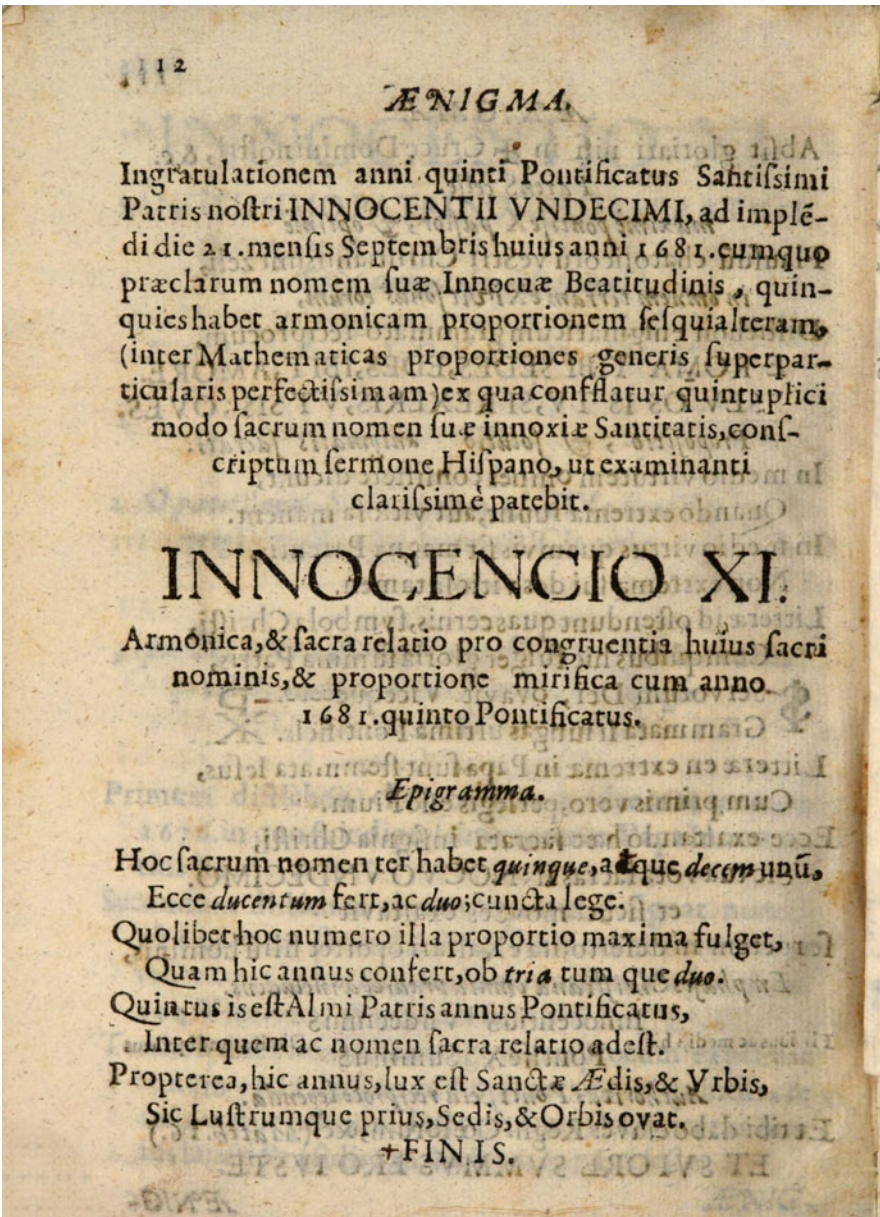 12
ÆNIGMA.
Ingratulationem anni quinti Pontificatus Santiſsimi
Patris noſtri INNOCENTII VNDECIMI, ad implē-
di die 21. menſis Septembris huius anni 1681. cumquo
præclarum nomem ſuæ Innocuæ Beatitudinis, quin-
quies habet armonicam proportionem ſeſquialteram,
(inter Mathematicas proportiones generis ſuperpar-
ticularis perfectiſsimam) ex qua confflatur quintuplici
modo ſacrum nomen ſuæ innoxiæ Santitatis, conſ-
criptum ſermone Hiſpano, ut examinanti
clariſsimè patebit.
INNOCENCIO XI.
Armónica, & ſacra relatio pro congruentia huius ſacri
nominis, & proportione mirifica cum anno
1681. quinto Pontificatus.
Epigramma.
Hoc ſacrum nomen ter habet quinque, atque decem unū,
Ecce ducentum fert, ac duo; cuncta lege.
Quolibet hoc numero illa proportio maxima fulget,
Quam hic annus confert, ob tria tum que duo.
Quintus is eſt Almi Patris annus Pontificatus,
Inter quem ac nomen ſacra relatio adeſt.
Propterea, hic annus, lux eſt Sanctæ Ædis, & Vrbis,
Sic Luſtrumque prius, Sedis, & Orbis ovat.
+FINIS.